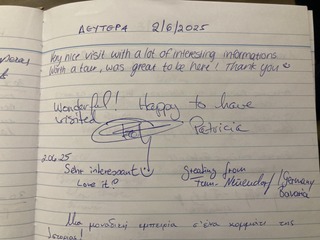 ΔΕΥΤΕΡΑ 2/6/2025
Very nice visit with a lot of interesting informations
Worth a tour, was great to be here! Thank you
Wonderful! Happy to have
visited
Patricia
2.06.25
Sehr interessant
Love it!
Greeting from
Germany
Bavaria
Μια μοναδική εμπειρία σ'ένα κομμάτι της
Ιστορίας!